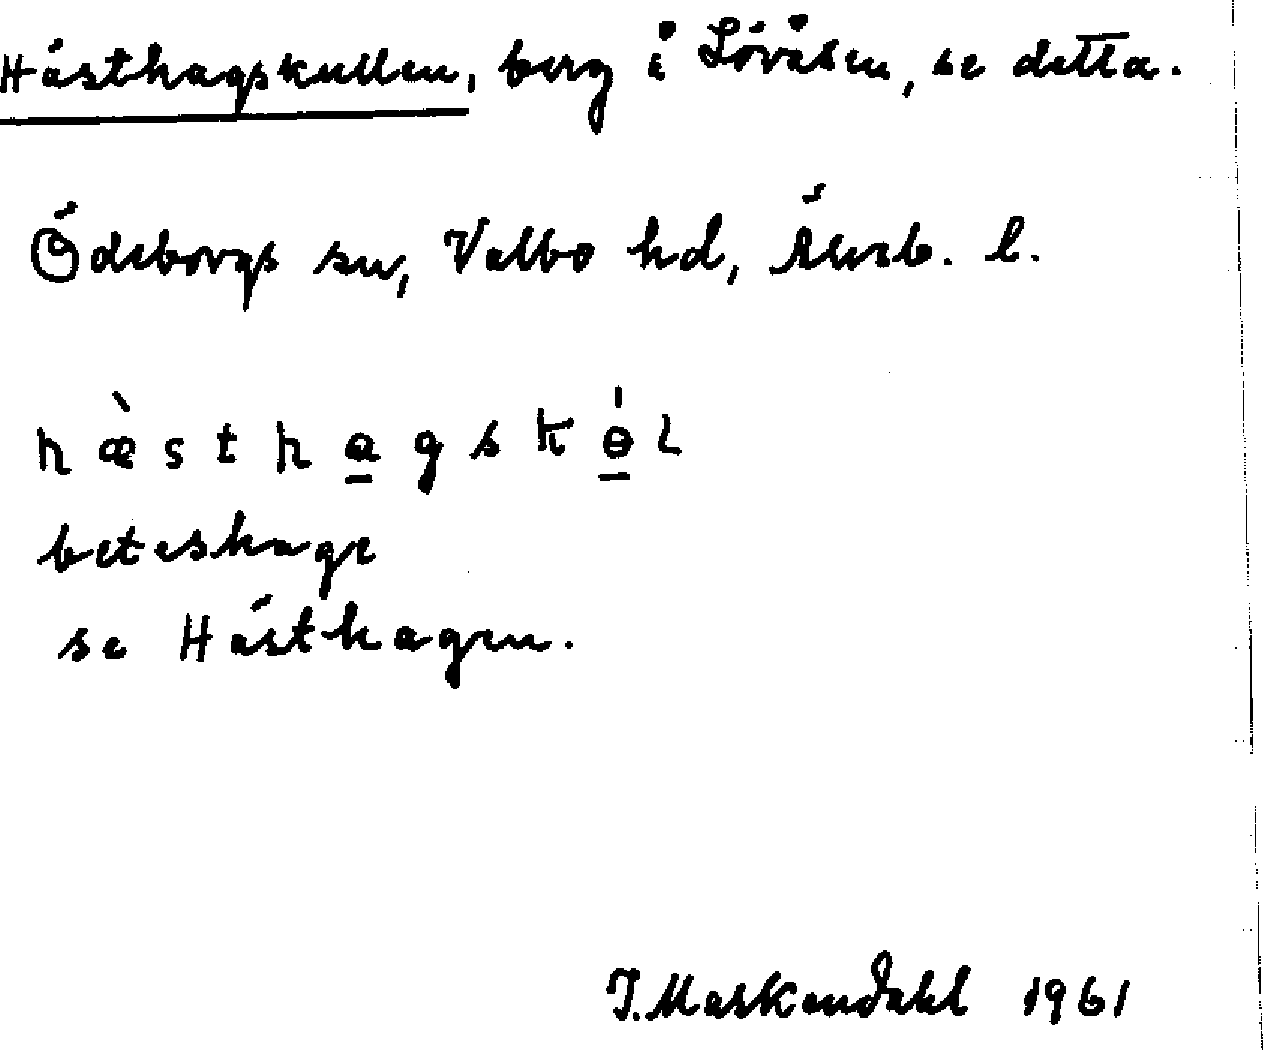 Hästhagskullen, berg i Lövåsen, se detta.
Ödeborgs sn, Valbo hd, Älvsb. l.
hæ̀stha̱gskɵ̱́l
beteshage
se Hästhagen.
J. Markendahl 1961